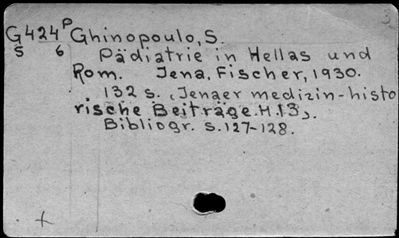 G424P Ghinopoulo, S.
S 6 Pädiatrie in Hellas und
Rom. Jena, Fischer, 1930.
132 s. (Jenaer medizin-histo
rische Beiträge. H. 13).
Bibliogr. s. 127-128.